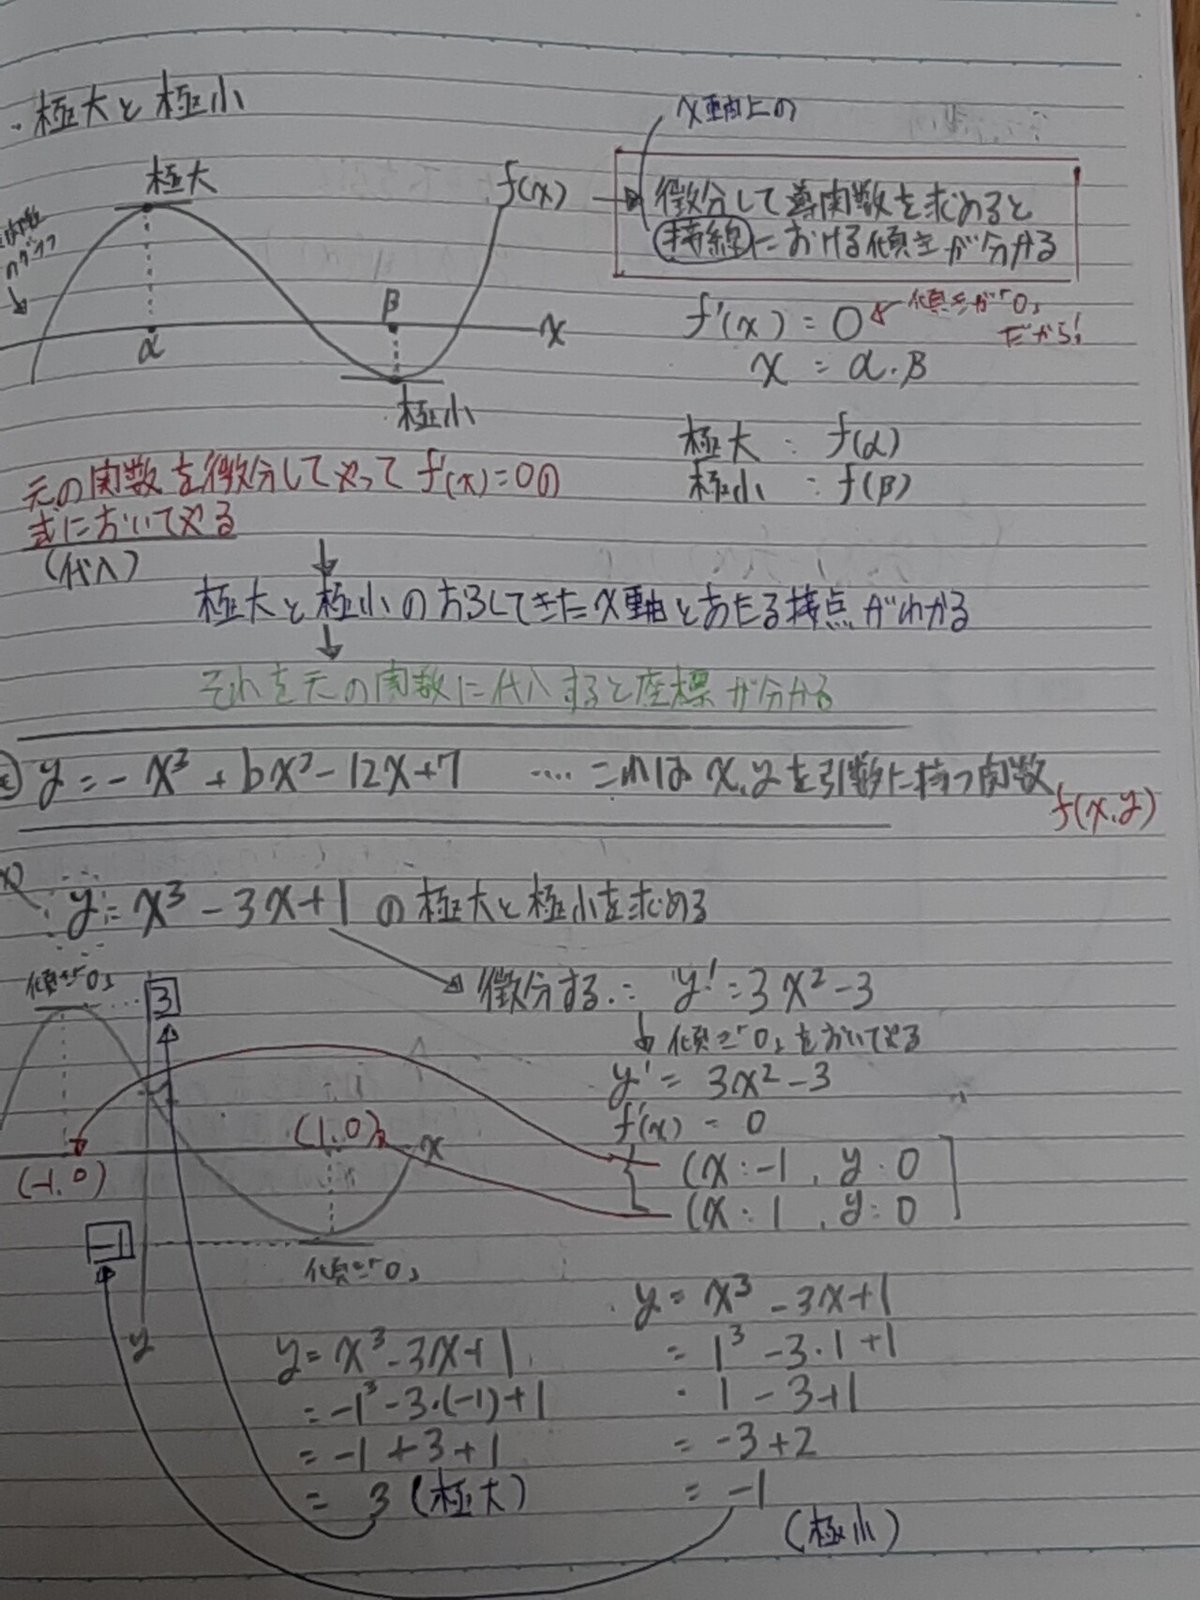 ・極大と極小
x軸上の
極大
f(x)
微分して導関数を求めると
接線における傾きが分かる
のグラフ
β
α
x
f'(x) = 0
傾きが「0」
だから!
x = α.β
極小
極大 : f(α)
極小 : f(β)
元の関数を微分してやって f'(x)=0の
式においてやる
(代入)
極大と極小のおろしてきたx軸とあたる接点がわかる
それを元の関数に代入すると座標が分かる
y = - x³ + bx² - 12x + 7 ････ これは x,yを引数に持つ関数
f(x,y)
y = x³ - 3x + 1 の極大と極小を求める
傾き「0」
3
微分する.: y' = 3x² - 3
↓ 傾き「0」をおいてやる
y' = 3x² - 3
f'(x) = 0
(1.0)
x
(-1.0)
(x:-1 , y:0
(x:1 , y:0
-1
傾き「0」
y
y = x³ - 3x + 1
= 1³ - 3・1 + 1
1 - 3 + 1
= -3 + 2
= -1
(極小)
y = x³ - 3x + 1
= -1³ - 3・(-1) + 1
= -1 + 3 + 1
= 3 (極大)